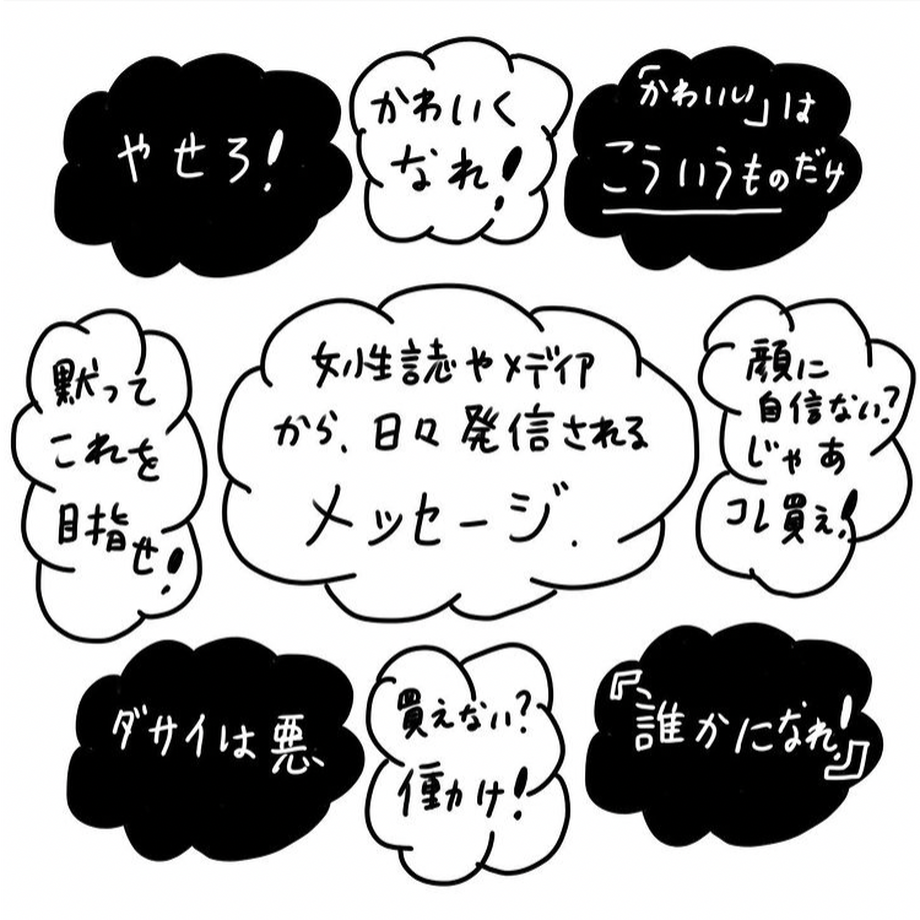 やせろ!
かわいく
なれ!
「かわいい」は
こういうものだけ
黙って
これを
目指
せ!
女性誌やメディア
から、日々発信される
メッセージ.
顔に
自信ない?
じゃあ
コレ買え!
ダサイは悪
買えない?
働け!
『誰かになれ!』